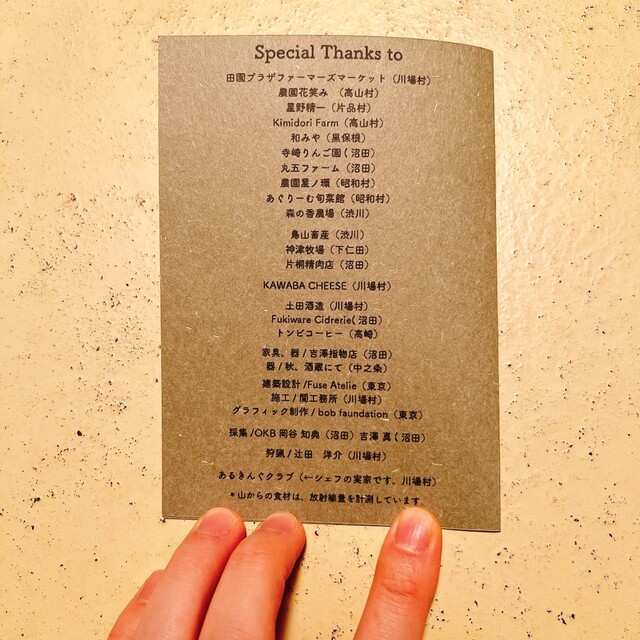 Special Thanks to
田園プラザファーマーズマーケット（川場村）
農園花笑み （高山村）
星野精一（片品村）
Kimidori Farm（高山村）
和みや（黒保根）
寺崎りんご園（沼田）
丸五ファーム（沼田）
農園星ノ環（昭和村）
あぐりーむ旬菜館（昭和村）
森の香農場（渋川）
鳥山畜産（渋川）
神津牧場（下仁田）
片桐精肉店（沼田）
KAWABA CHEESE（川場村）
土田酒造（川場村）
Fukiware Cidrerie（沼田）
トンビコーヒー（高崎）
家具、器/吉澤指物店（沼田）
器/秋、酒蔵にて（中之条）
建築設計/Fuse Atelie（東京）
施工/関工務所（川場村）
グラフィック制作/bob faundation（東京）
採集/OKB 岡谷 知典（沼田）吉澤 真（沼田）
狩猟/辻田 洋介（川場村）
あるきんぐクラブ（←シェフの実家です、川場村）
*山からの食材は、放射線量を計測しています。